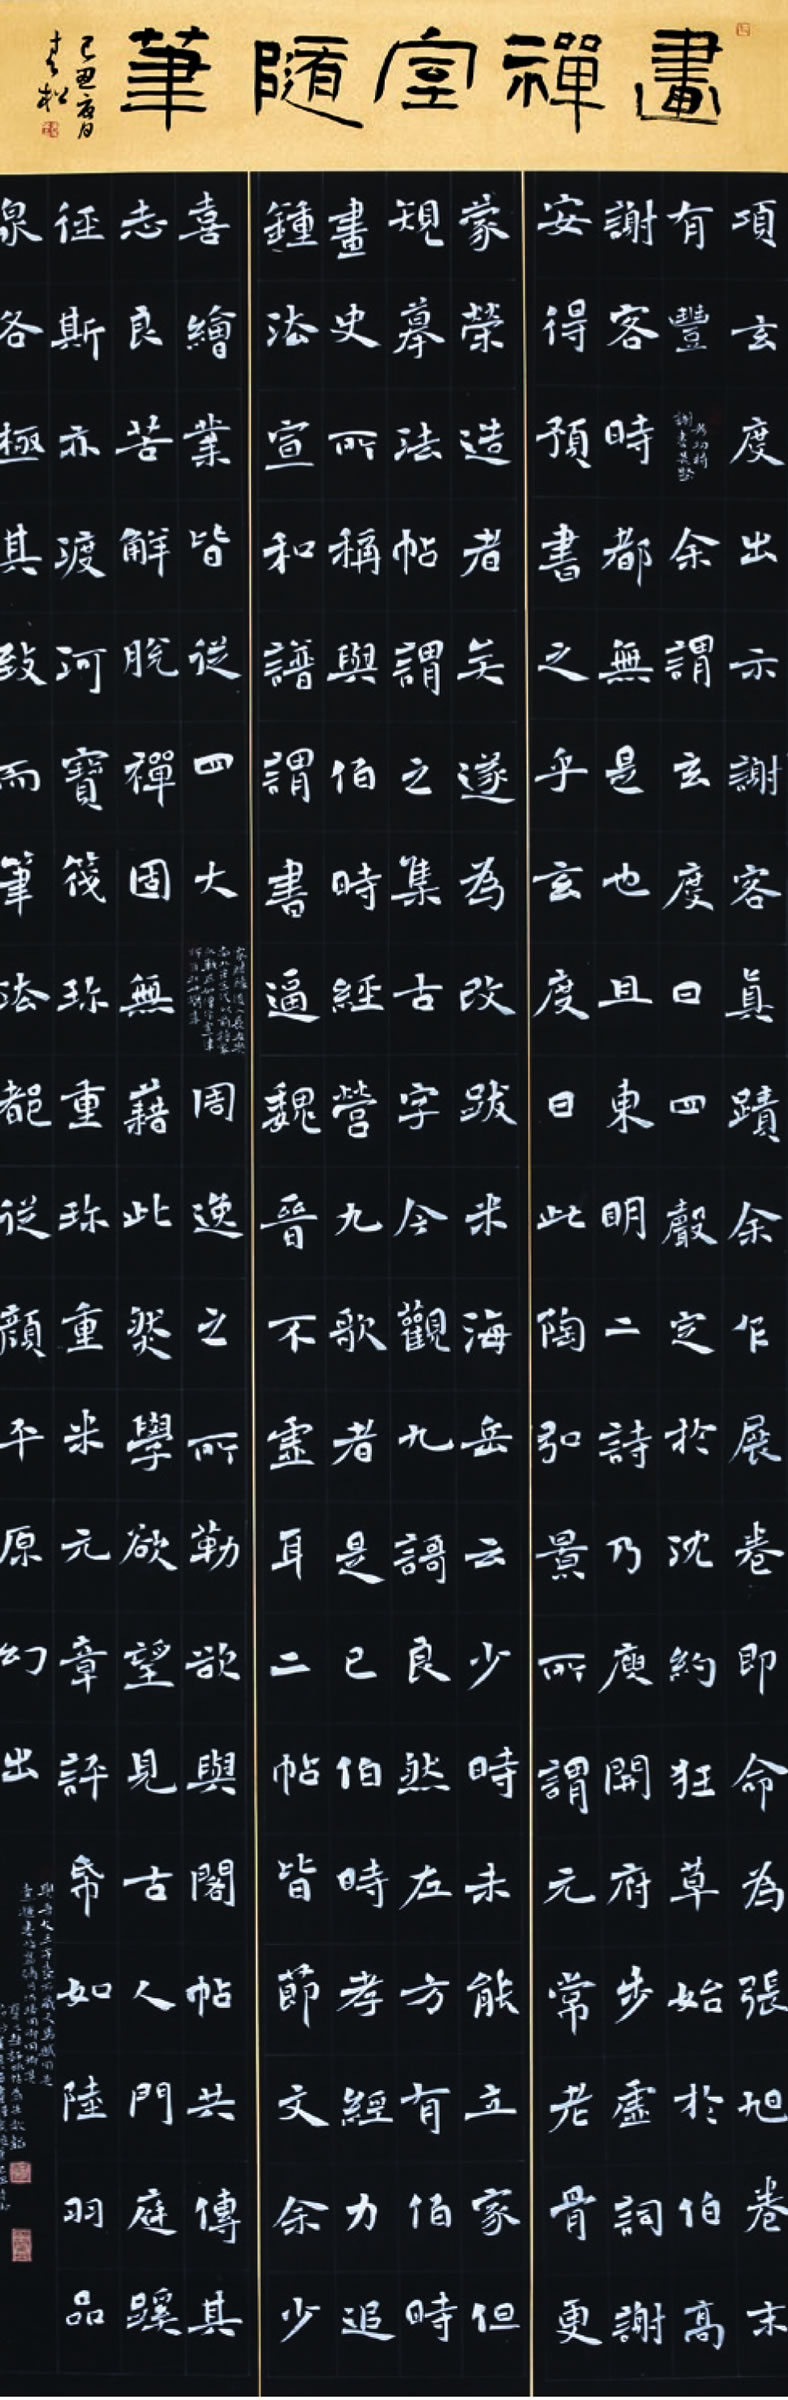 畫禪室隨筆
己丑夏日
青松
項玄度出示謝客眞蹟余乍展卷即命為張旭卷末
有豐余謂玄度曰四聲定於沈約狂草始於伯高
謝客時都無是也且東明二詩乃庾開府步虛詞謝
安得預書之乎玄度曰此陶弘景所謂元常老骨更
蒙榮造者矣遂為改跋米海岳云少時未能立家但
規摹法帖謂之集古字今觀九謌良然左方有伯時
畫史所稱與伯時經營九歌者是已伯時孝經力追
鍾法宣和譜謂書逼魏晉不虛耳二帖皆節文余少
喜繪業皆從四大周逸之所勒欲與閣帖共傳其
志良苦解脫禪固無藉此然學欲望見古人門庭蹊
徑斯亦渡河寶筏珍重珍重米元章評帋如陸羽品
泉各極其致而筆法都從顏平原幻出